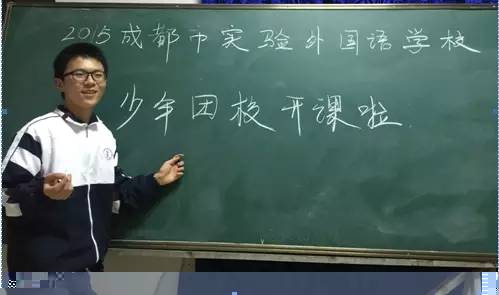 2015成都市实验外国语学校
少年团校开课啦.